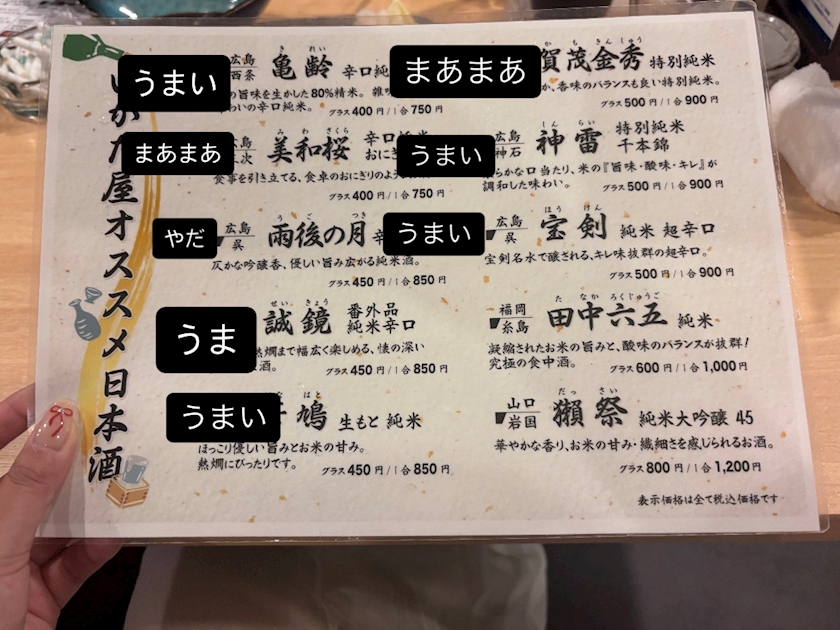 屋オススメ日本酒
うまい
広島
西条
きれい
亀齢
辛口純
の旨味を生かした80%精米。
わいの辛口純米。
グラス400円/1合750円
まあまあ
みわさくら
美和桜
食事を引き立てる、食卓のおにぎりのよ
グラス400円/1合750円
やだ
広島
呉
うごのつき
雨後の月
仄かな吟醸香、優しい旨み広がる純米酒。
グラス450円/1合850円
うま
せいきょう
誠鏡
番外品
純米辛口
熱燗まで幅広く楽しめる、懐の深い
酒。
グラス450円/1合850円
うまい
はと
鳩
生もと 純米
ほっこり優しい旨みとお米の甘み。
熱燗にぴったりです。
グラス450円/1合850円
まあまあ
かもきんしゅう
賀茂金秀
特別純米
か、香味のバランスも良い特別純米。
グラス500円/1合900円
うまい
広島
神石
しんらい
神雷
特別純米
千本錦
らかな口当たり、米の『旨味・酸味・キレ』が
調和した味わい。
グラス500円/1合900円
うまい
広島
呉
ほうけん
宝剣
純米 超辛口
宝剣名水で醸される、キレ味抜群の超辛口。
グラス500円/1合900円
福岡
糸島
たなかろくじゅうご
田中六五
純米
凝縮されたお米の旨みと、酸味のバランスが抜群!
究極の食中酒。
グラス600円/1合1,000円
山口
岩国
だっさい
獺祭
純米大吟醸 45
華やかな香り、お米の甘み・繊細さを感じられるお酒。
グラス800円/1合1,200円
表示価格は全て税込価格です